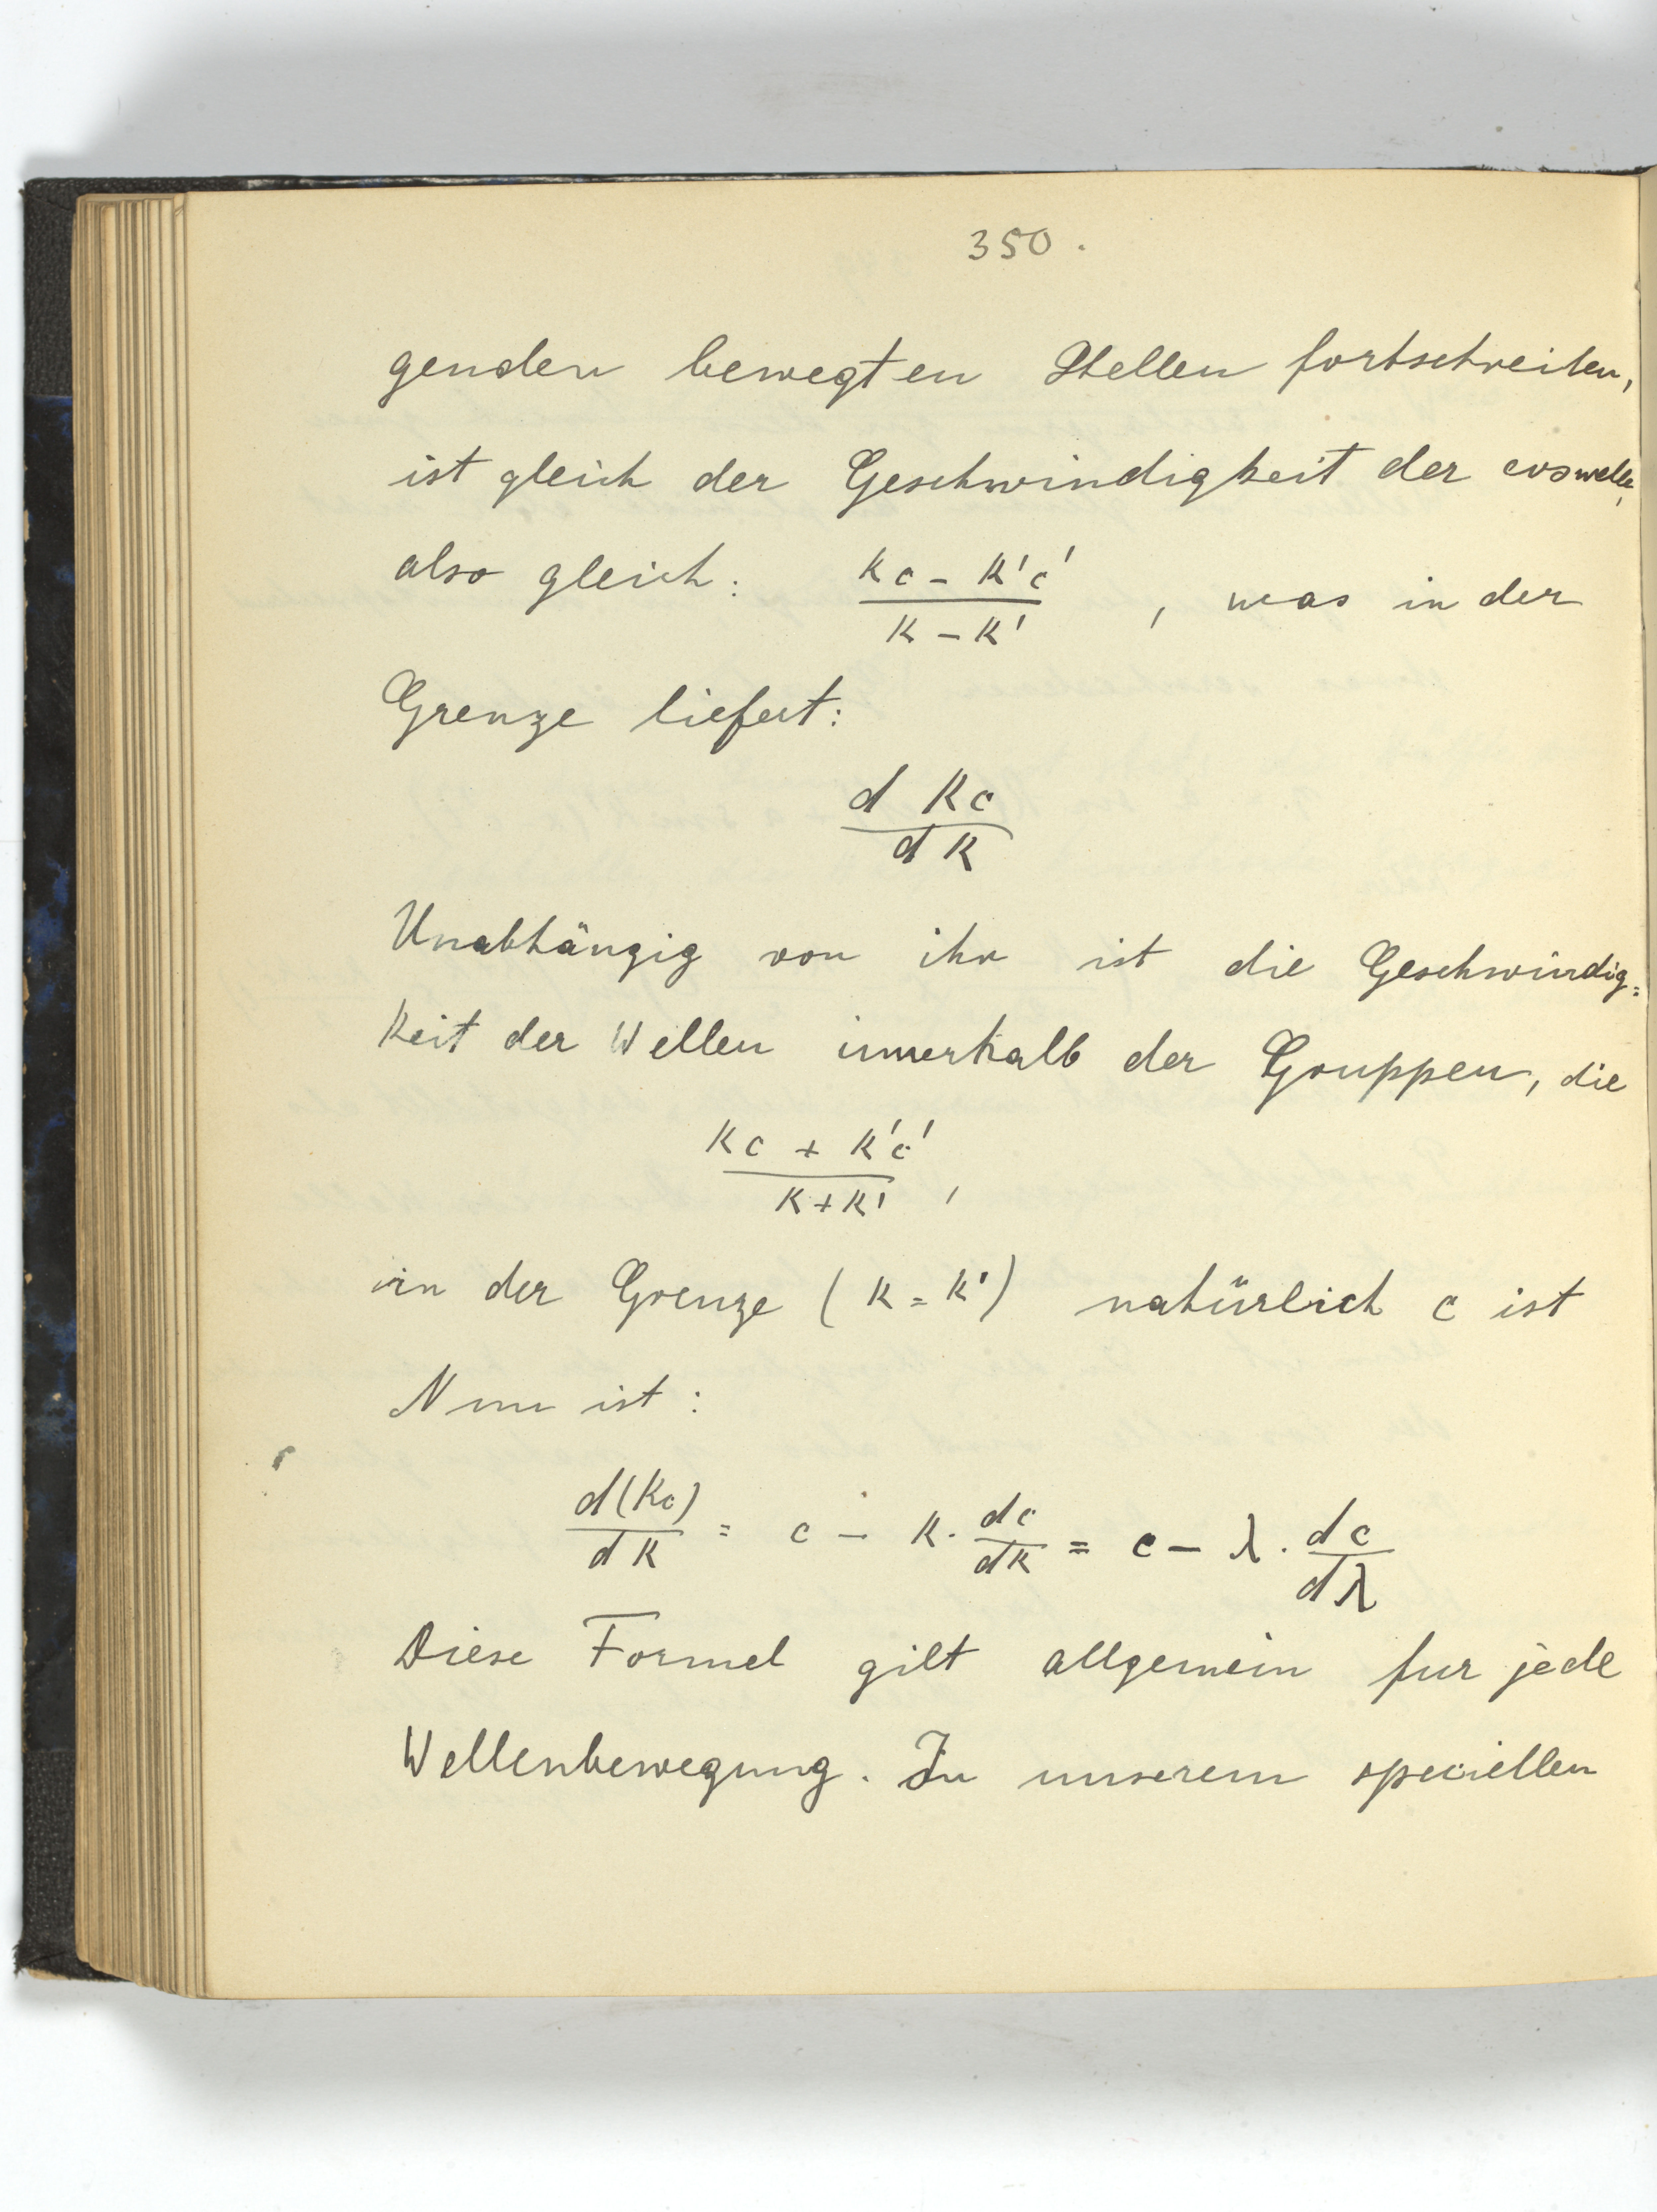 350.
genden bewegten Stellen fortschreiten,
ist gleich der Geschwindigkeit der coswelle,
also gleich: (Kc - K'c') / (K - K') , was in der
Grenze liefert:
d Kc / d K
Unabhängig von ihr ist die Geschwindig=
keit der Wellen innerhalb der Gruppen, die
(Kc + K'c') / (K + K') ,
in der Grenze (K = K') natürlich c ist
Nun ist:
d(Kc) / dK = c - K · dc/dK = c - λ · dc/dλ
Diese Formel gilt allgemein fur jede
Wellenbewegung. In unserem speciellen